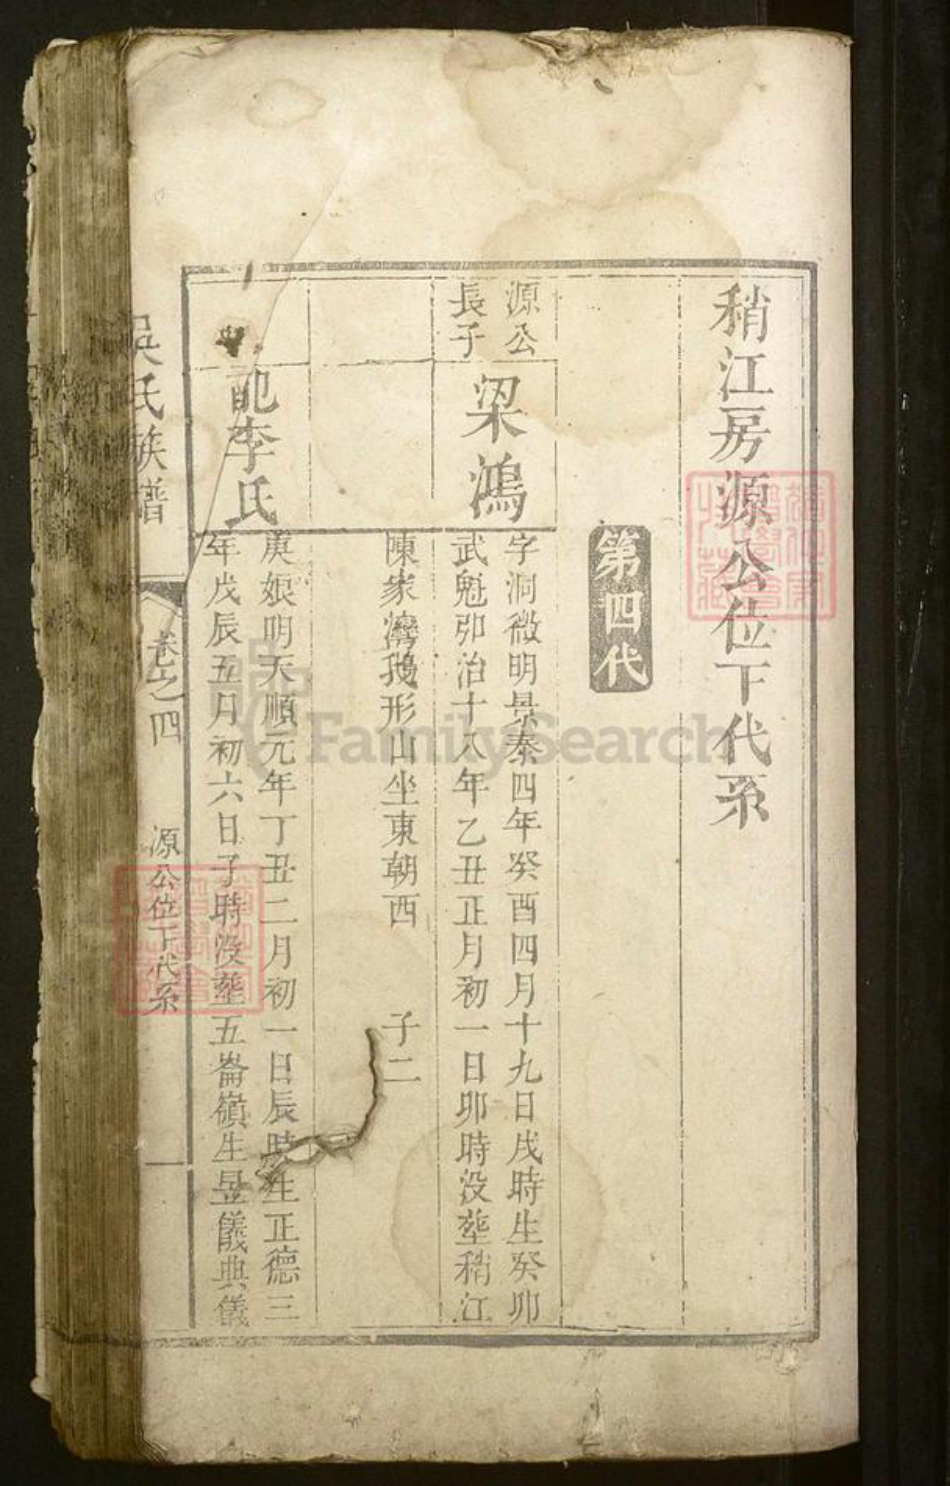 稍江房源公位下代系
第四代
源公
長子
梁鴻
字洞微明景泰四年癸酉四月十九日戌時生癸卯
武魁卯治十八年乙丑正月初一日卯時没塟稍江
陳家灣鵝形山坐東朝西 子二
配李氏
庚娘明天順元年丁丑二月初一日辰時生正德三
年戊辰五月初六日子時没塟五崙嶺生昱儀典儀
吳氏族譜
卷之四
源公位下代系
FamilySearch